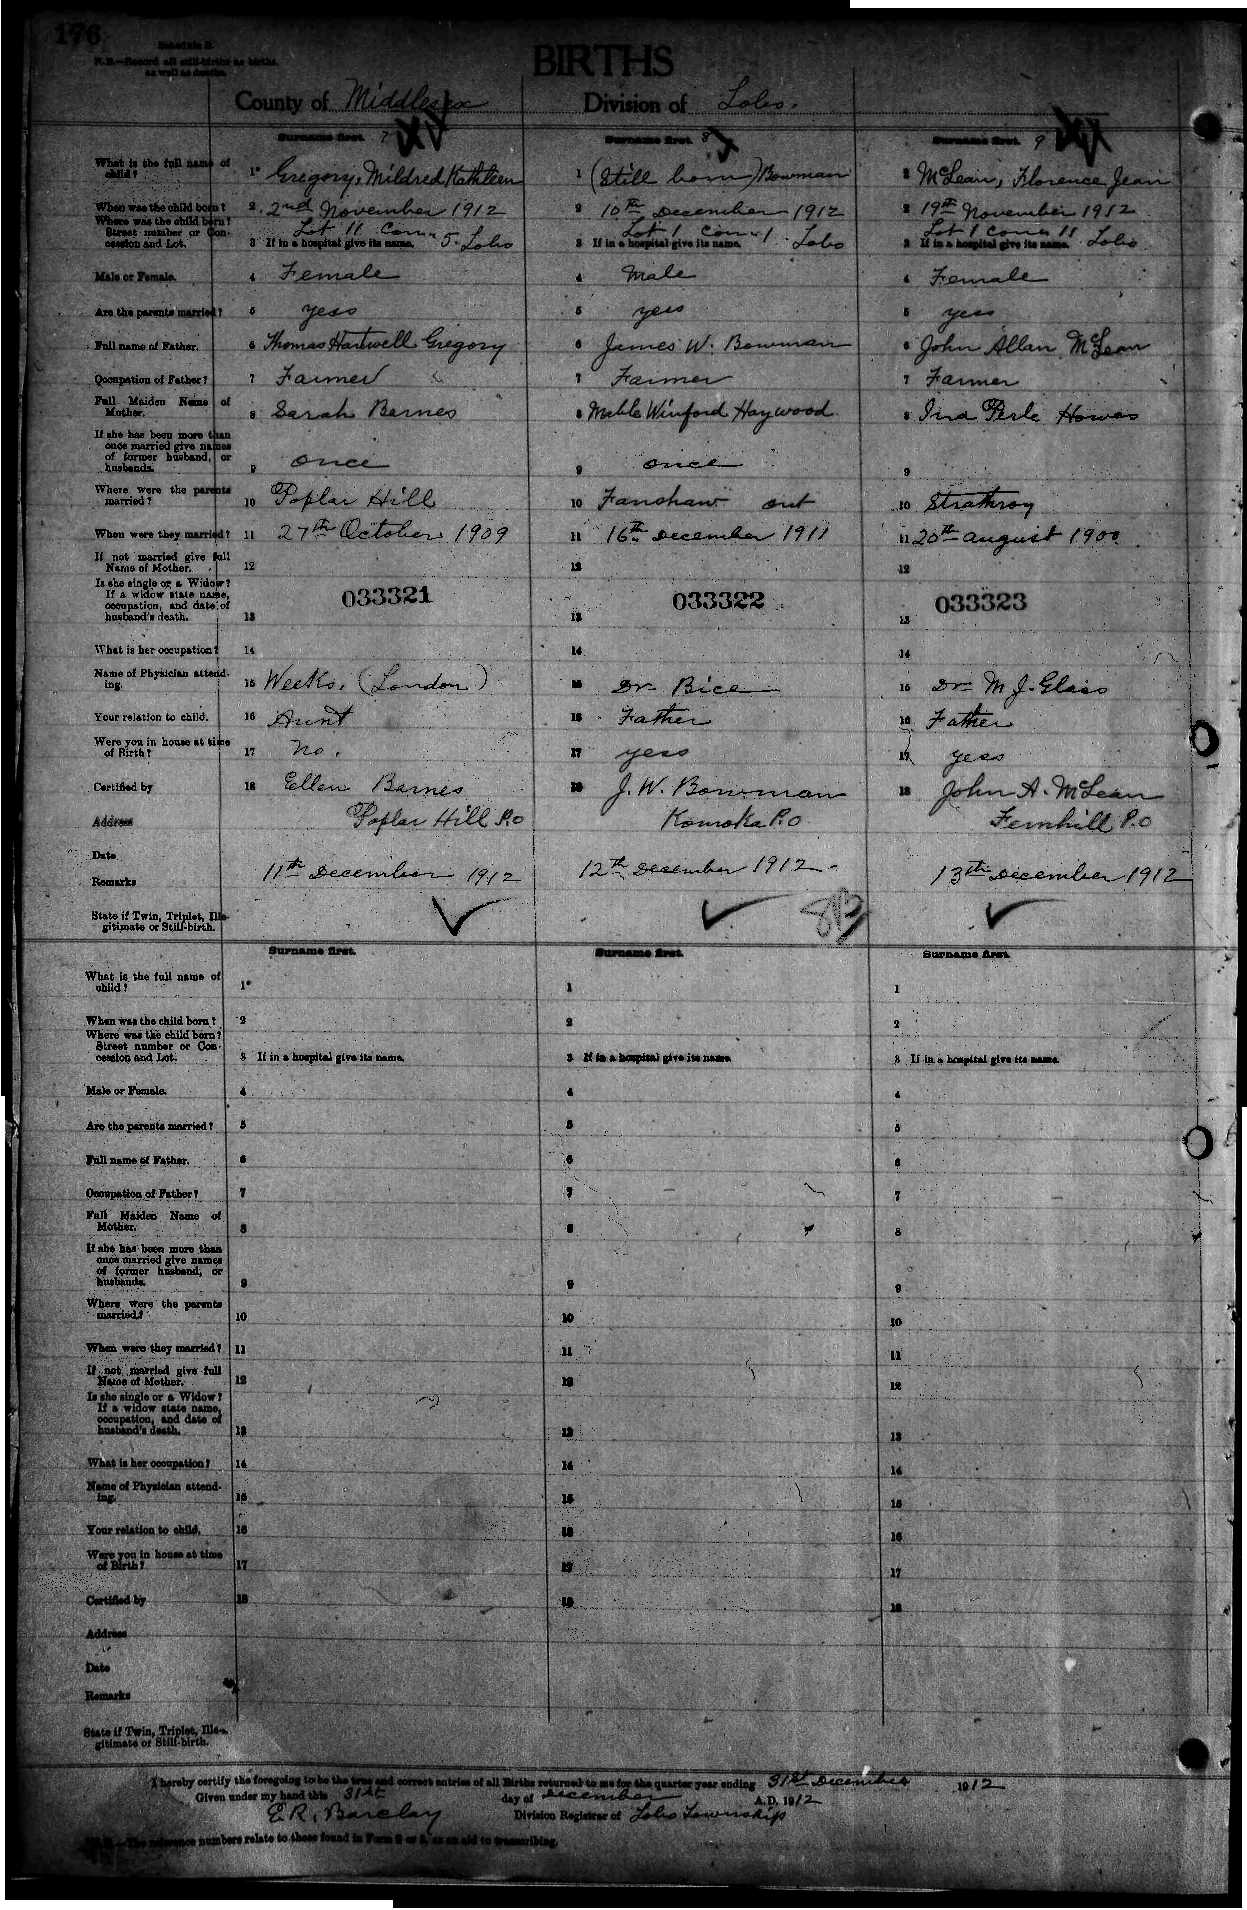 176
Schedule B.
N.B.—Record all still-births as births,
as well as deaths.
BIRTHS
County of Middlesex
Division of Lobo.
Surname first. 7
Surname first. 8
Surname first. 9
What is the full name of child?
1 Gregory, Mildred Kathleen
1 (Still born) Bowman
1 McLean, Florence Jean
When was the child born?
2 2nd November 1912
2 10th December 1912
2 19th November 1912
Where was the child born? Street number or Concession and Lot.
Lot 11 Con. 5. Lobo
Lot 1 Con. 1 Lobo
Lot 1 Con. 11 Lobo
3 If in a hospital give its name.
3 If in a hospital give its name.
3 If in a hospital give its name.
Male or Female.
4 Female
4 Male
4 Female
Are the parents married?
5 yess
5 yess
5 yess
Full name of Father.
6 Thomas Hartwell Gregory
6 James W. Bowman
6 John Allan McLean
Occupation of Father?
7 Farmer
7 Farmer
7 Farmer
Full Maiden Name of Mother.
8 Sarah Barnes
8 Mable Winford Haywood
8 Ina Perle Howes
If she has been more than once married give names of former husband, or husbands.
9 once
9 once
9
Where were the parents married?
10 Poplar Hill
10 Fanshaw ont
10 Strathroy
When were they married?
11 27th October 1909
11 16th December 1911
11 20th august 1900
If not married give full Name of Mother.
12
12
12
Is she single or a Widow? If a widow state name, occupation, and date of husband's death.
033321
033322
033323
13
13
13
What is her occupation?
14
14
14
Name of Physician attending.
15 Weeks. (London)
15 Dr. Bice
15 Dr. M J. Glass
Your relation to child.
16 Aunt
16 Father
16 Father
Were you in house at time of Birth?
17 no.
17 yess
17 yess
Certified by
18 Ellen Barnes
18 J. W. Bowman
18 John A. McLean
Address
Poplar Hill P.O
Komoka P.O
Fernhill P.O
Date
11th December 1912
12th December 1912
13th December 1912
Remarks
State if Twin, Triplet, Illegitimate or Still-birth.
SB
Surname first.
Surname first.
Surname first.
What is the full name of child?
1
1
1
When was the child born?
2
2
2
Where was the child born? Street number or Concession and Lot.
3 If in a hospital give its name.
3 If in a hospital give its name.
3 If in a hospital give its name.
Male or Female.
4
4
4
Are the parents married?
5
5
5
Full name of Father.
6
6
6
Occupation of Father?
7
7
7
Full Maiden Name of Mother.
8
8
8
If she has been more than once married give names of former husband, or husbands.
9
9
9
Where were the parents married?
10
10
10
When were they married?
11
11
11
If not married give full Name of Mother.
12
12
12
Is she single or a Widow? If a widow state name, occupation, and date of husband's death.
13
13
13
What is her occupation?
14
14
14
Name of Physician attending.
15
15
15
Your relation to child.
16
16
16
Were you in house at time of Birth?
17
17
17
Certified by
18
18
18
Address
Date
Remarks
State if Twin, Triplet, Illegitimate or Still-birth.
I hereby certify the foregoing to be the true and correct entries of all Births returned to me for the quarter year ending 31st December 1912
Given under my hand this 31st day of December A.D. 1912
E. R. Barclay Division Registrar of Lobo Township
N.B.—The reference numbers relate to those found in Form 2 or 3, as an aid to transcribing.